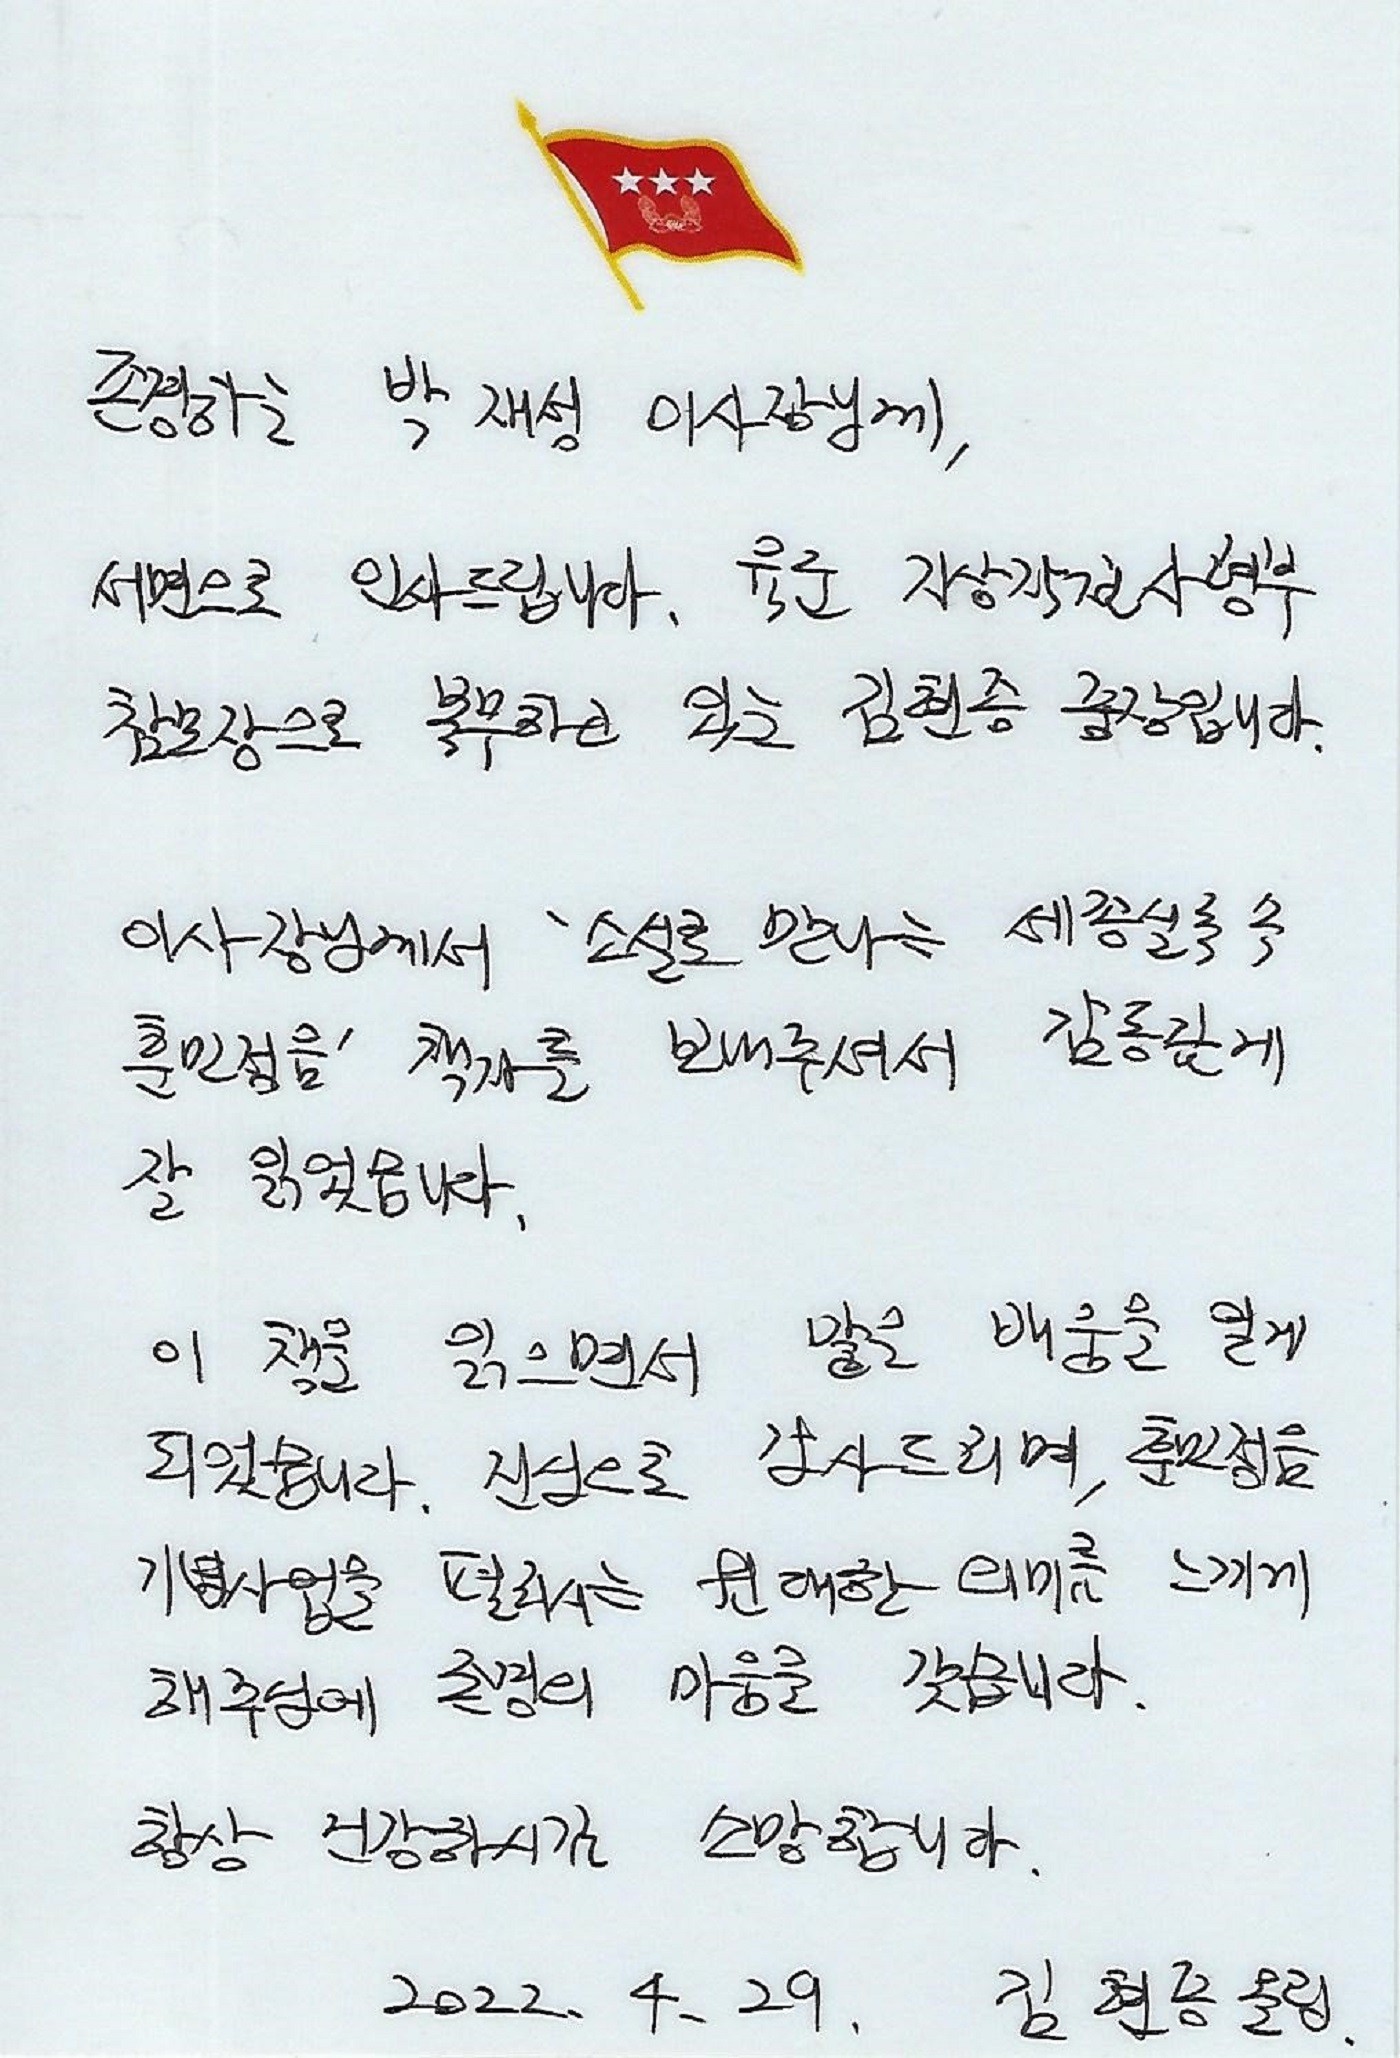 존경하는 박재성 이사장님께,
서면으로 인사드립니다. 육군 지상작전사령부
참모장으로 복무하고 있는 김현종 중장입니다.
이사장님께서 '소설로 만나는 세종실록 속
훈민정음' 책자를 보내주셔서 감동깊게
잘 읽었습니다.
이 책을 읽으면서 많은 배움을 얻게
되었습니다. 진심으로 감사드리며, 훈민정음
기념사업을 펼치시는 원대한 의미를 느끼게
해주심에 존경의 마음을 갖습니다.
항상 건강하시길 소망합니다.
2022. 4. 29. 김현종 올림.